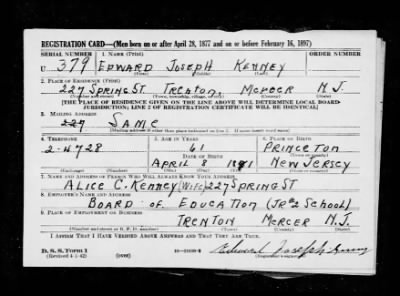 REGISTRATION CARD—(Men born on or after April 28, 1877 and on or before February 16, 1897)
SERIAL NUMBER 1. NAME (Print) ORDER NUMBER
U 379 EDWARD JOSEPH KENNEY
(First) (Middle) (Last)
2. PLACE OF RESIDENCE (Print)
227 SPRING ST. TRENTON, MERCER N.J.
(Number and street) (Town, township, village, or city) (County) (State)
[THE PLACE OF RESIDENCE GIVEN ON THE LINE ABOVE WILL DETERMINE LOCAL BOARD
JURISDICTION; LINE 2 OF REGISTRATION CERTIFICATE WILL BE IDENTICAL]
3. MAILING ADDRESS
227 SAME
[Mailing address if other than place indicated on line 2. If same insert word same]
4. TELEPHONE 5. AGE IN YEARS 6. PLACE OF BIRTH
2-4728 61 PRINCETON
DATE OF BIRTH
APRIL 8 1881 NEW JERSEY
7. NAME AND ADDRESS OF PERSON WHO WILL ALWAYS KNOW YOUR ADDRESS
ALICE C. KENNEY (Wife) 227 SPRING ST
8. EMPLOYER'S NAME AND ADDRESS
BOARD OF EDUCATION (JR #2 SCHOOL)
9. PLACE OF EMPLOYMENT OR BUSINESS
TRENTON MERCER N.J.
(Number and street or R. F. D. number) (Town) (County) (State)
I AFFIRM THAT I HAVE VERIFIED ABOVE ANSWERS AND THAT THEY ARE TRUE.
D. S. S. Form 1
(Revised 4-1-42) (over) Edward Joseph Kenney